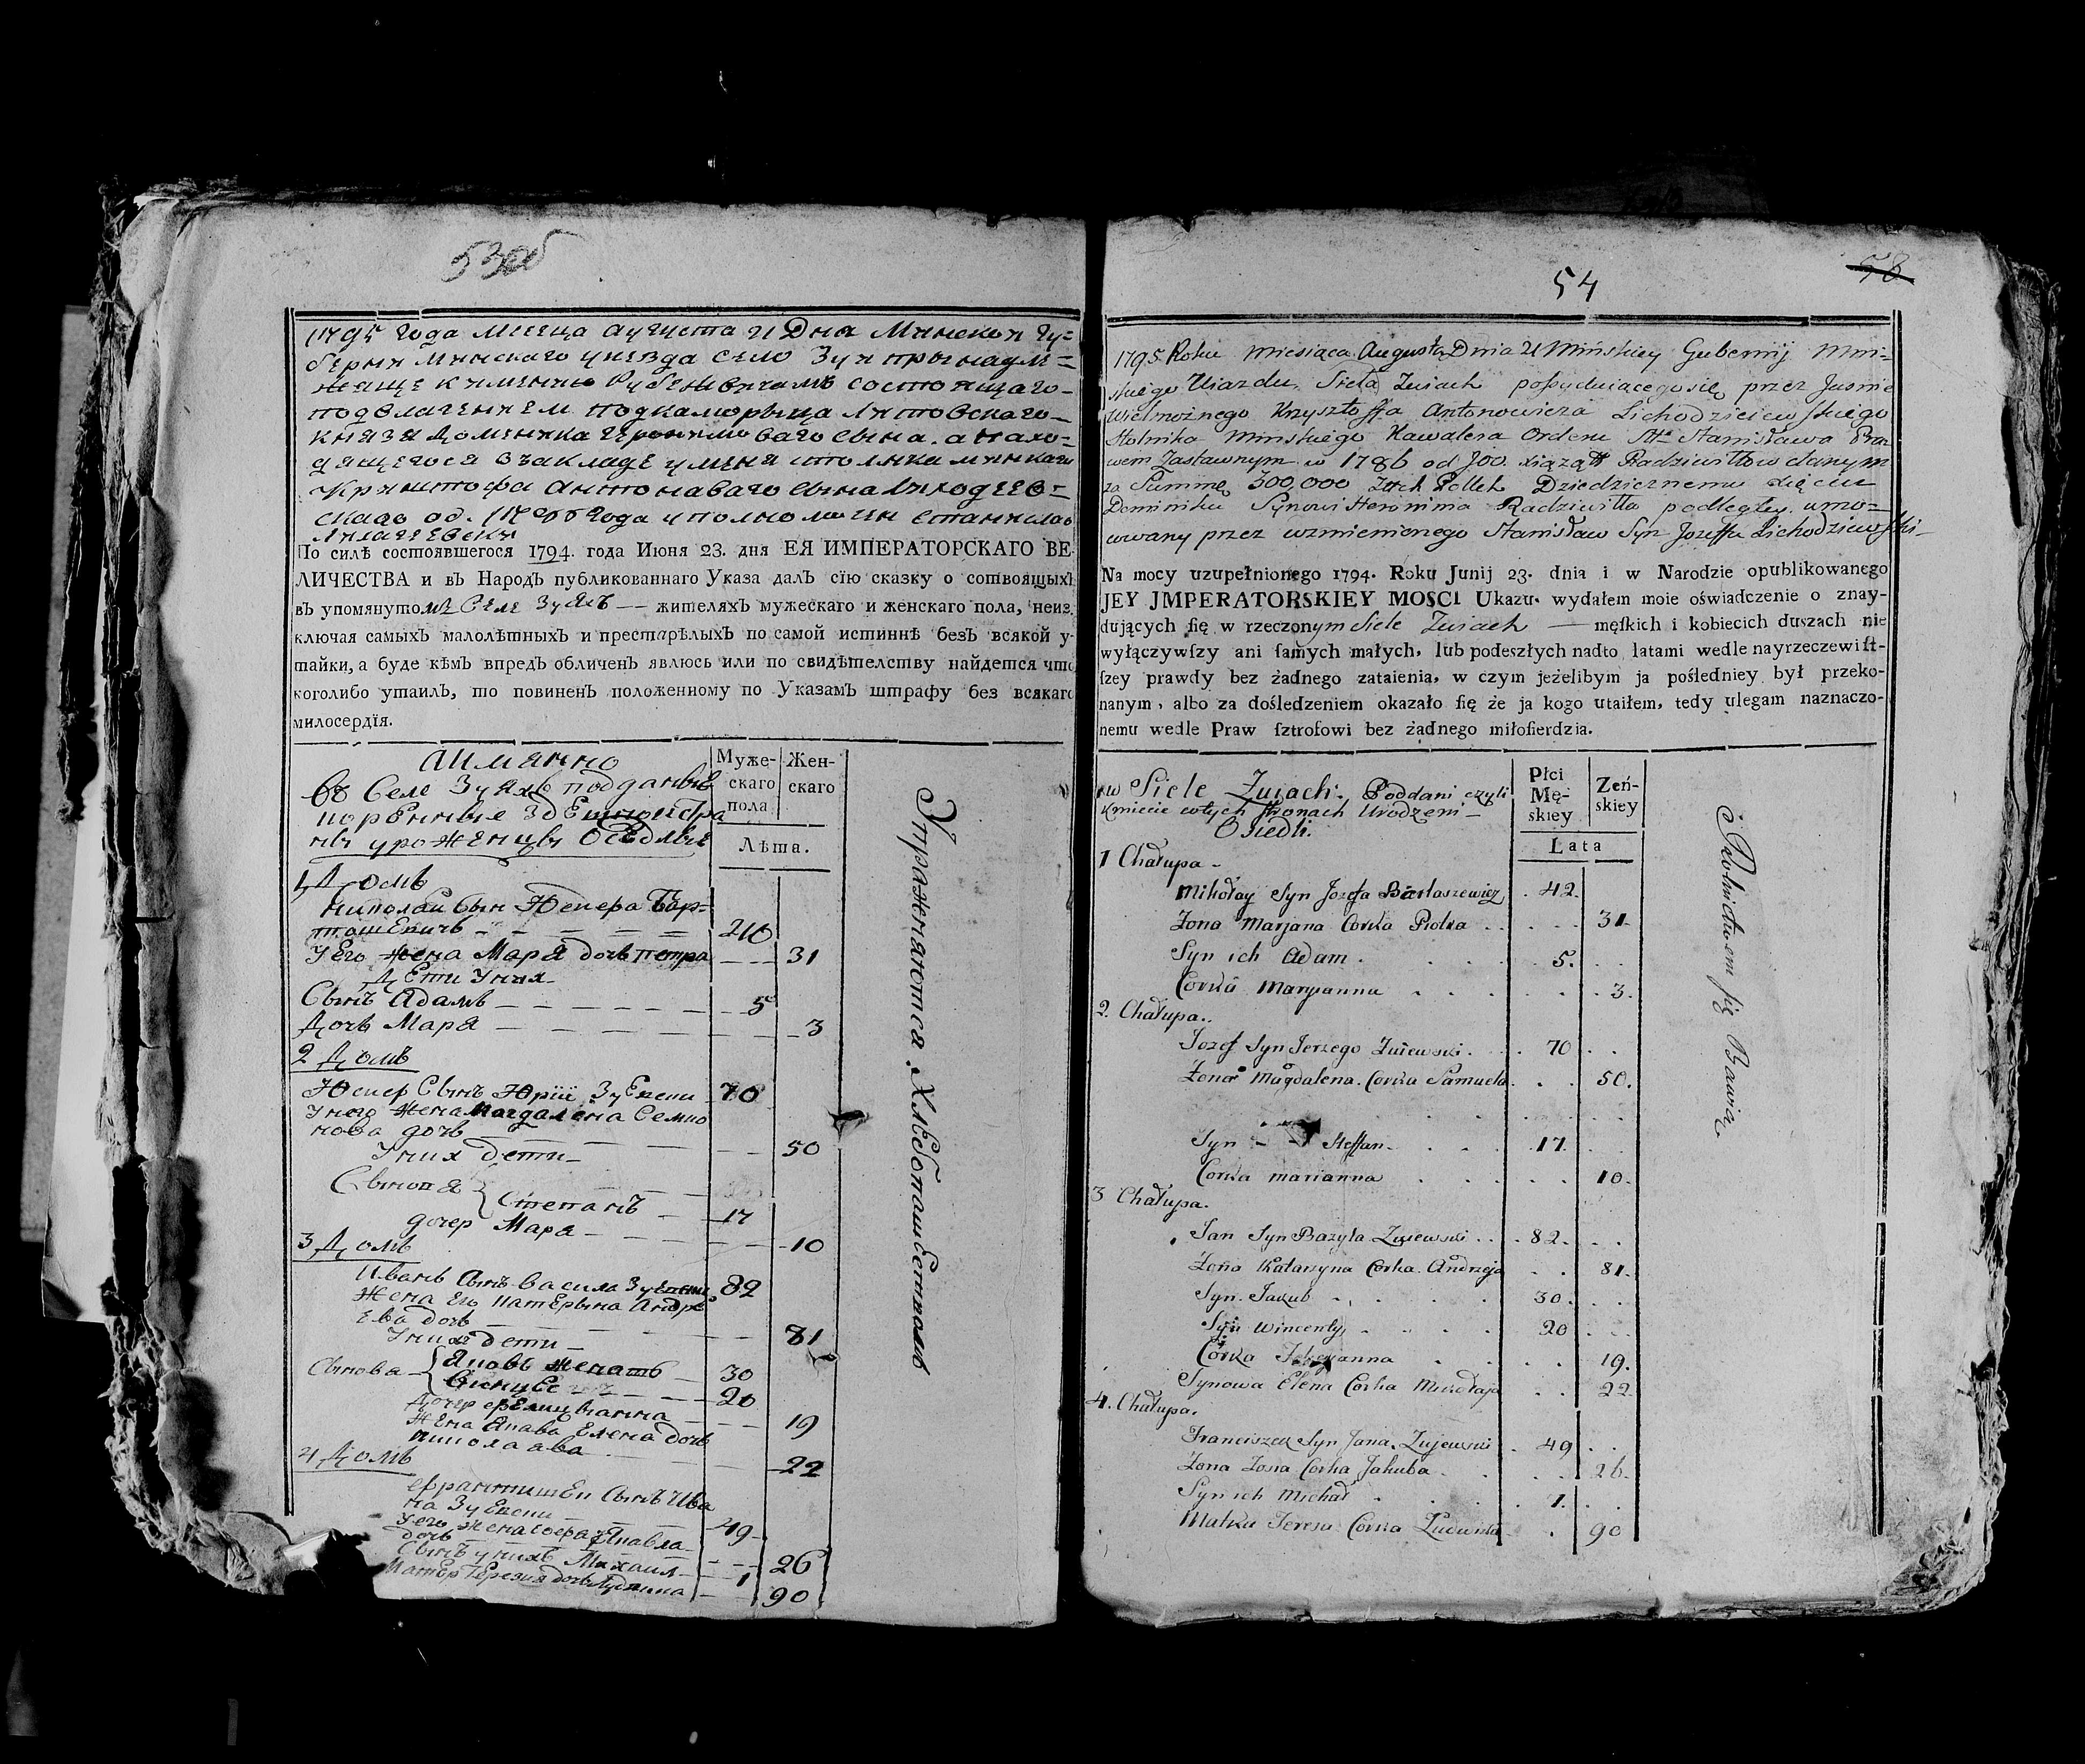 53об
1795 года месеца аугуста 21 Дня Минской гу=
берыи Минскаго уиезда село Зуи принадле=
жаще к имению Рубежевичамъ состоящаго
под влагением подкаморыца Литовскаго
князя Доминика Геронимоваго сына. а нахо=
дящегося в закладе у меня столника минскаго
Крыштофа Антонаваго сына Лиходеев=
скаго од. 1786 года уполномочен Станислав
По силѣ состоявшегося 1794. года Июня 23. дня ЕЯ ИМПЕРАТОРСКАГО ВЕ
ЛИЧЕСТВА и въ Народъ публикованнаго Указа далъ сїю сказку о состоящыхъ
въ упомянутомъ Селе Зуяхъ — жителяхъ мужескаго и женскаго пола, неиз
ключая самыхъ малолѣтныхъ и престарѣлыхъ по самой истиннѣ безъ всякой у-
тайки, а буде кѣмъ впредъ обличенъ явлюсь или по свидѣтелству найдется что
коголибо утаилъ, то повиненъ положенному по Указамъ штрафу без всякаго
милосердїя.
аимянно
въ Селе Зуяхъ подданые
коренные здешной стра
ны уроженцы Оседлые
Муже-
скаго
пола
Жен-
скаго
Лѣта.
1 Домъ
Николай Сын Юзефа Бар=
тошевичъ 42
У Его жена Маря дочь петра 31
Дети У них
Сынъ Адамъ 5
Дочь Маря 3
2 Домъ
Юсиф Сынъ Юрия Зуевски 70
У него жена Магдалена Семио
нова дочь 50
У них дети
Сыновя { Степанъ 17
дочер Маря 10
3 Домъ
Иванъ Сынъ Васила Зуевски 82
Жена Его Катерына Андре
ева дочь 81
У них дети
Сынова { Якобъ женатъ 30
Винцусь 20
Дочер 19
Жена Якава Елена дочь
николаава 22
4 Домъ
Франтишек Сынъ Ива
на Зуевски 49
У его жена Софея Якавла
дочь 26
Сынъ у нихъ Михаил 1
Матер Терезия дочь Людвика 90
Упражняются Хлебопашеством
54
58
1795 Roku Miesiąca Augusta Dnia 21 Mińskiey Gubernij Miń-
skiego Uiazdu. Sioła Zuiach possyduiącego się przez Jaśnie
Wielmożnego Krzysztoffa Antonowicza Lichodzieiewskiego
Stolnika Mińskiego Kawalera Orderu Sgo Stanisława Pra
wem Zastawnym w 1786 od JOO. Xiążąt Radziwiłłow danym
za Summę 300,000 Złłch Pollch Dziedzicznemu Xięciu
Dominiku Synowi Heronima Radziwiłła podległey. umo=
cowany przez wzmienionego Stanisław Syn Jozeffa Lichodziewski-
Na mocy uzupełnionego 1794. Roku Junij 23. dnia i w Narodzie opublikowanego
JEY JMPERATORSKIEY MOSCI Ukazu. wydałem moie oświadczenie o znay-
dujących ſię w rzeczonym Siele Zuiach — męſkich i kobiecich duszach nie
wyłączywſzy ani ſamych małych, lub podeszłych nadto latami wedle nayrzeczewiſt-
ſzey prawdy bez żadnego zataienia, w czym jeżelibym ja poślednieу był przeko-
nanym, albo za dośledzeniem okazało ſię że ja kogo utaiłem, tedy ulegam naznaczo-
nemu wedle Praw ſztrofowi bez żadnego miłoſierdzia.
w Siele Zuiach. Poddani czyli
Kmiecie w tych stronach Urodzeni
Osiedli.
Płci
Mę-
skiey
Zeń-
skiey
Lata
1 Chałupa
Mikołay Syn Jozefa Bartaszewicz 42.
Zona Marjana Corka Piotra 31.
Syn ich Adam 5.
Corka Maryanna 3.
2. Chałupa.
Jozef Syn Jerzego Zuiewski 70
Zona Magdalena Corka Samuela 50.
Syn Steffan 17.
Corka marianna 10.
3 Chałupa.
Jan Syn Bazyla Zuiewski 82.
Zona Katarzyna Corka Andrzeja 81.
Syn Jakub 30.
Syn Wincenty 20
Corka 19.
Synowa Elena Corka Mikołaja 22
4. Chałupa.
Franciszek Syn Jana Zujewski 49
Zona Zosia Corka Jakuba 26.
Syn ich Michał 1.
Matka Teresa Corka Ludwika 90
Rolnictwem się Bawią